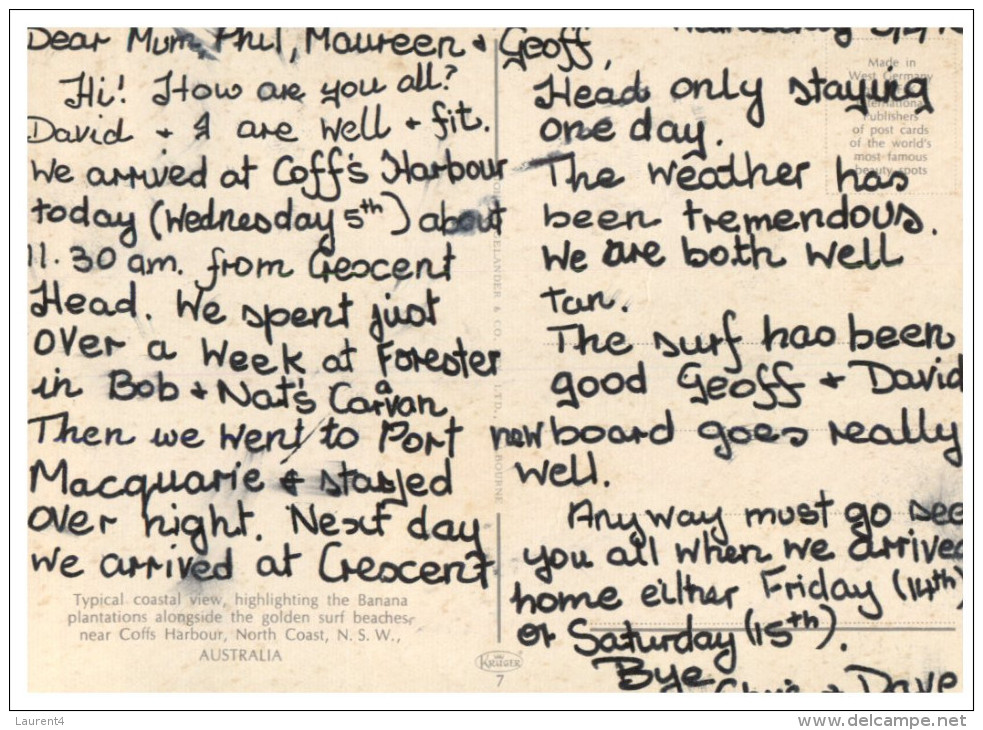 Dear Mum, Phil, Maureen + Geoff,
Hi! How are you all?
David + I are well + fit.
We arrived at Coff's Harbour
today (Wednesday 5th) about
11.30 am. from Crescent
Head. We spent just
over a week at Forester
in Bob + Nat's Carvan
a
Then we went to Port
Macquarie + stayed
over night. Next day
we arrived at Crescent
Typical coastal view, highlighting the Banana
plantations alongside the golden surf beaches,
near Coffs Harbour, North Coast, N. S. W.,
AUSTRALIA
KRÜGER
7
LTD.,
Head only staying
one day.
The weather has
been tremendous.
We are both well
tan.
The surf has been
good Geoff + David
new board goes really
well.
Anyway must go see
you all when we arrive
home either Friday (14th)
or Saturday (15th).
Bye
Chris + Dave
Made in
West Germany
International
Publishers
of post cards
of the world's
most famous
beauty spots
Laurent4
www.delcampe.net